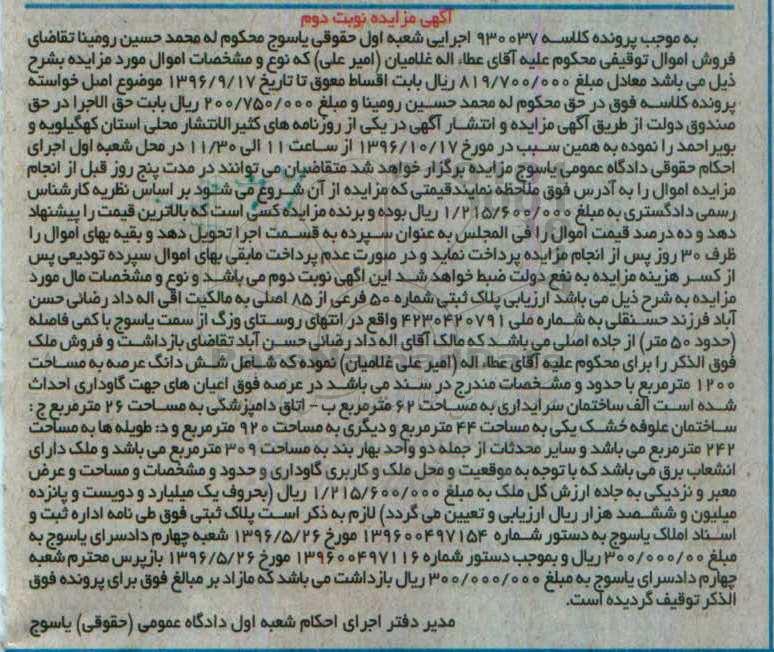 آگهی مزایده نوبت دوم
به موجب پرونده کلاسه ۹۳۰۰۳۷ اجرایی شعبه اول حقوقی یاسوج محکوم له محمد حسین رومینا تقاضای
فروش اموال توقیفی محکوم علیه آقای عطاء اله غلامیان (امیر علی) که نوع و مشخصات اموال مورد مزایده بشرح
ذیل می باشد معادل مبلغ ۸۱۹/۷۰۰/۰۰۰ ریال بابت اقساط معوق تا تاریخ ۱۳۹۶/۹/۱۷ موضوع اصل خواسته
پرونده کلاسه فوق در حق محکوم له محمد حسین رومینا و مبلغ ۲۰۰/۷۵۰/۰۰۰ ریال بابت حق الاجرا در حق
صندوق دولت از طریق آگهی مزایده و انتشار آگهی در یکی از روزنامه های کثیرالانتشار محلی استان کهگیلویه و
بویراحمد را نموده به همین سبب در مورخ ۱۳۹۶/۱۰/۱۷ از ساعت ۱۱ الی ۱۱/۳۰ در محل شعبه اول اجرای
احکام حقوقی دادگاه عمومی یاسوج مزایده برگزار خواهد شد متقاضیان می توانند در مدت پنج روز قبل از انجام
مزایده اموال را به آدرس فوق ملاحظه نمایندقیمتی که مزایده از آن شروع می شود بر اساس نظریه کارشناس
رسمی دادگستری به مبلغ ۱/۲۱۵/۶۰۰/۰۰۰ ریال بوده و برنده مزایده کسی است که بالاترین قیمت را پیشنهاد
دهد و ده درصد قیمت اموال را فی المجلس به عنوان سپرده به قسمت اجرا تحویل دهد و بقیه بهای اموال را
ظرف ۳۰ روز پس از انجام مزایده پرداخت نماید و در صورت عدم پرداخت مابقی بهای اموال سپرده تودیعی پس
از کسر هزینه مزایده به نفع دولت ضبط خواهد شد این آگهی نوبت دوم می باشد و نوع و مشخصات مال مورد
مزایده به شرح ذیل می باشد ارزیابی پلاک ثبتی شماره ۵۰ فرعی از ۸۵ اصلی به مالکیت آقی اله داد رضائی حسن
آباد فرزند حسنقلی به شماره ملی ۴۲۳۰۴۲۰۷۹۱ واقع در انتهای روستای وزگ از سمت یاسوج با کمی فاصله
(حدود ۵۰ متر) از جاده اصلی می باشد که مالک آقای اله داد رضائی حسن آباد تقاضای بازداشت و فروش ملک
فوق الذکر را برای محکوم علیه آقای عطا اله (امیر علی غلامیان) نموده که شامل شش دانگ عرصه به مساحت
۱۲۰۰ مترمربع با حدود و مشخصات مندرج در سند می باشد در عرصه فوق اعیان های جهت گاوداری احداث
شده است الف ساختمان سرایداری به مساحت ۶۲ مترمربع ب - اتاق دامپزشکی به مساحت ۲۶ مترمربع ج :
ساختمان علوفه خشک یکی به مساحت ۴۴ مترمربع و دیگری به مساحت ۹۲۰ مترمربع و د: طویله ها به مساحت
۲۴۲ مترمربع می باشد و سایر محدثات از جمله دو واحد بهار بند به مساحت ۳۰۹ مترمربع می باشد و ملک دارای
انشعاب برق می باشد که با توجه به موقعیت و محل ملک و کاربری گاوداری و حدود و مشخصات و مساحت و عرض
معبر و نزدیکی به جاده ارزش کل ملک به مبلغ ۱/۲۱۵/۶۰۰/۰۰۰ ریال (بحروف یک میلیارد و دویست و پانزده
میلیون و ششصد هزار ریال ارزیابی و تعیین می گردد) لازم به ذکر است پلاک ثبتی فوق طی نامه اداره ثبت و
اسناد املاک یاسوج به دستور شماره ۱۳۹۶۰۰۴۹۷۱۵۴ مورخ ۱۳۹۶/۵/۲۶ شعبه چهارم دادسرای یاسوج به
مبلغ ۳۰۰/۰۰۰/۰۰ ریال و بموجب دستور شماره ۱۳۹۶۰۰۴۹۷۱۱۶ مورخ ۱۳۹۶/۵/۲۶ بازپرس محترم شعبه
چهارم دادسرای یاسوج به مبلغ ۳۰۰/۰۰۰/۰۰۰ ریال بازداشت می باشد که مازاد بر مبالغ فوق برای پرونده فوق
الذکر توقیف گردیده است.
مدیر دفتر اجرای احکام شعبه اول دادگاه عمومی (حقوقی) یاسوج